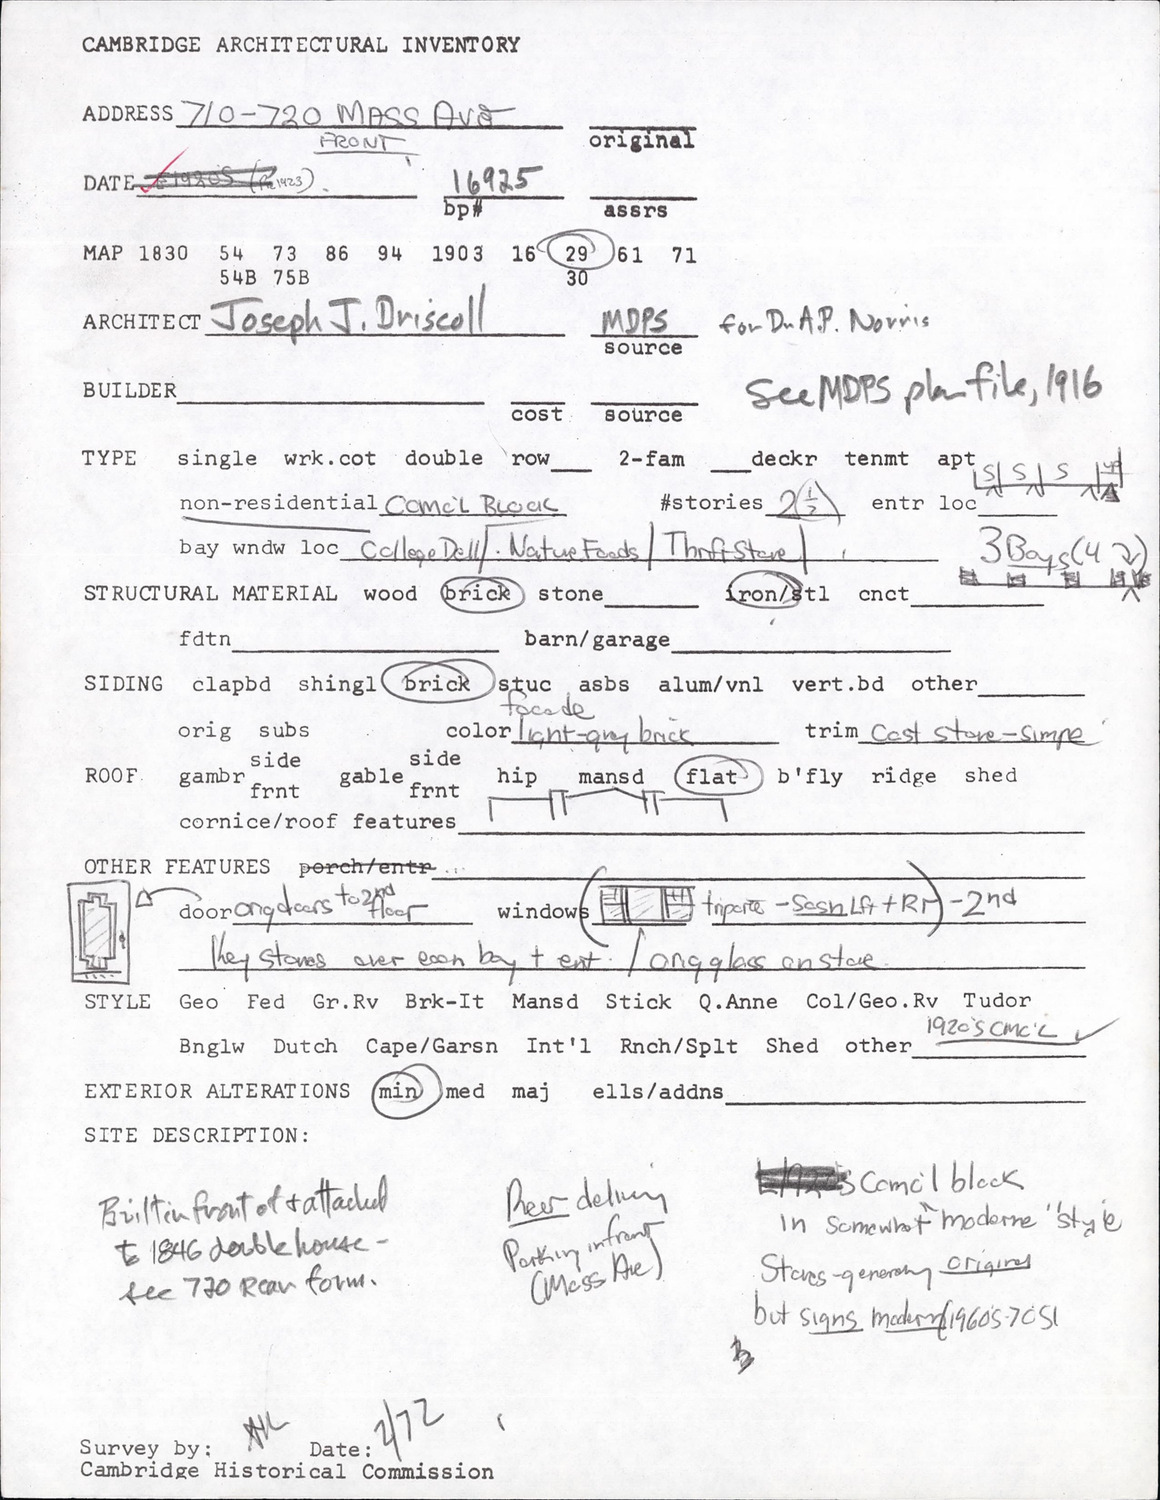 CAMBRIDGE ARCHITECTURAL INVENTORY
ADDRESS 710-720 MASS AVE
FRONT
original
DATE 1920S (Pre 1923)
16925
bp#
assrs
MAP 1830 54 73 86 94 1903 16 29 61 71
54B 75B 30
ARCHITECT Joseph J. Driscoll MDPS for Dr A.P. Norris
source
BUILDER See MDPS plan file, 1916
cost source
TYPE single wrk.cot double row 2-fam deckr tenmt apt S S S up
non-residential Comc'l Block #stories 2(1/2) entr loc
bay wndw loc College Deli/. Nature Foods/ Thrift Store/ 3 Bays (4
STRUCTURAL MATERIAL wood brick stone iron/stl cnct
fdtn barn/garage
SIDING clapbd shingl brick stuc asbs alum/vnl vert.bd other
facade
orig subs color light-gray brick trim Cast stone-simple
ROOF gambr side frnt gable side frnt hip mansd flat b'fly ridge shed
cornice/roof features
OTHER FEATURES porch/entr
door orig doors to 2nd floor windows tripartite - Sash Lft + Rt) - 2nd
Key stones over each bay + ent. / orig glass on store
STYLE Geo Fed Gr.Rv Brk-It Mansd Stick Q.Anne Col/Geo.Rv Tudor
Bnglw Dutch Cape/Garsn Int'l Rnch/Splt Shed other 1920's CMC'L
EXTERIOR ALTERATIONS min med maj ells/addns
SITE DESCRIPTION:
Built in front of & attached
to 1846 double house -
see 720 Rear form.
Rear delivery
Parking in front
(Mass Ave)
L1920's Comc'l block
in somewhat moderne "style
Stores-generally original
but signs modern (1960s-70s)
Survey by: Date: 2/72
Cambridge Historical Commission